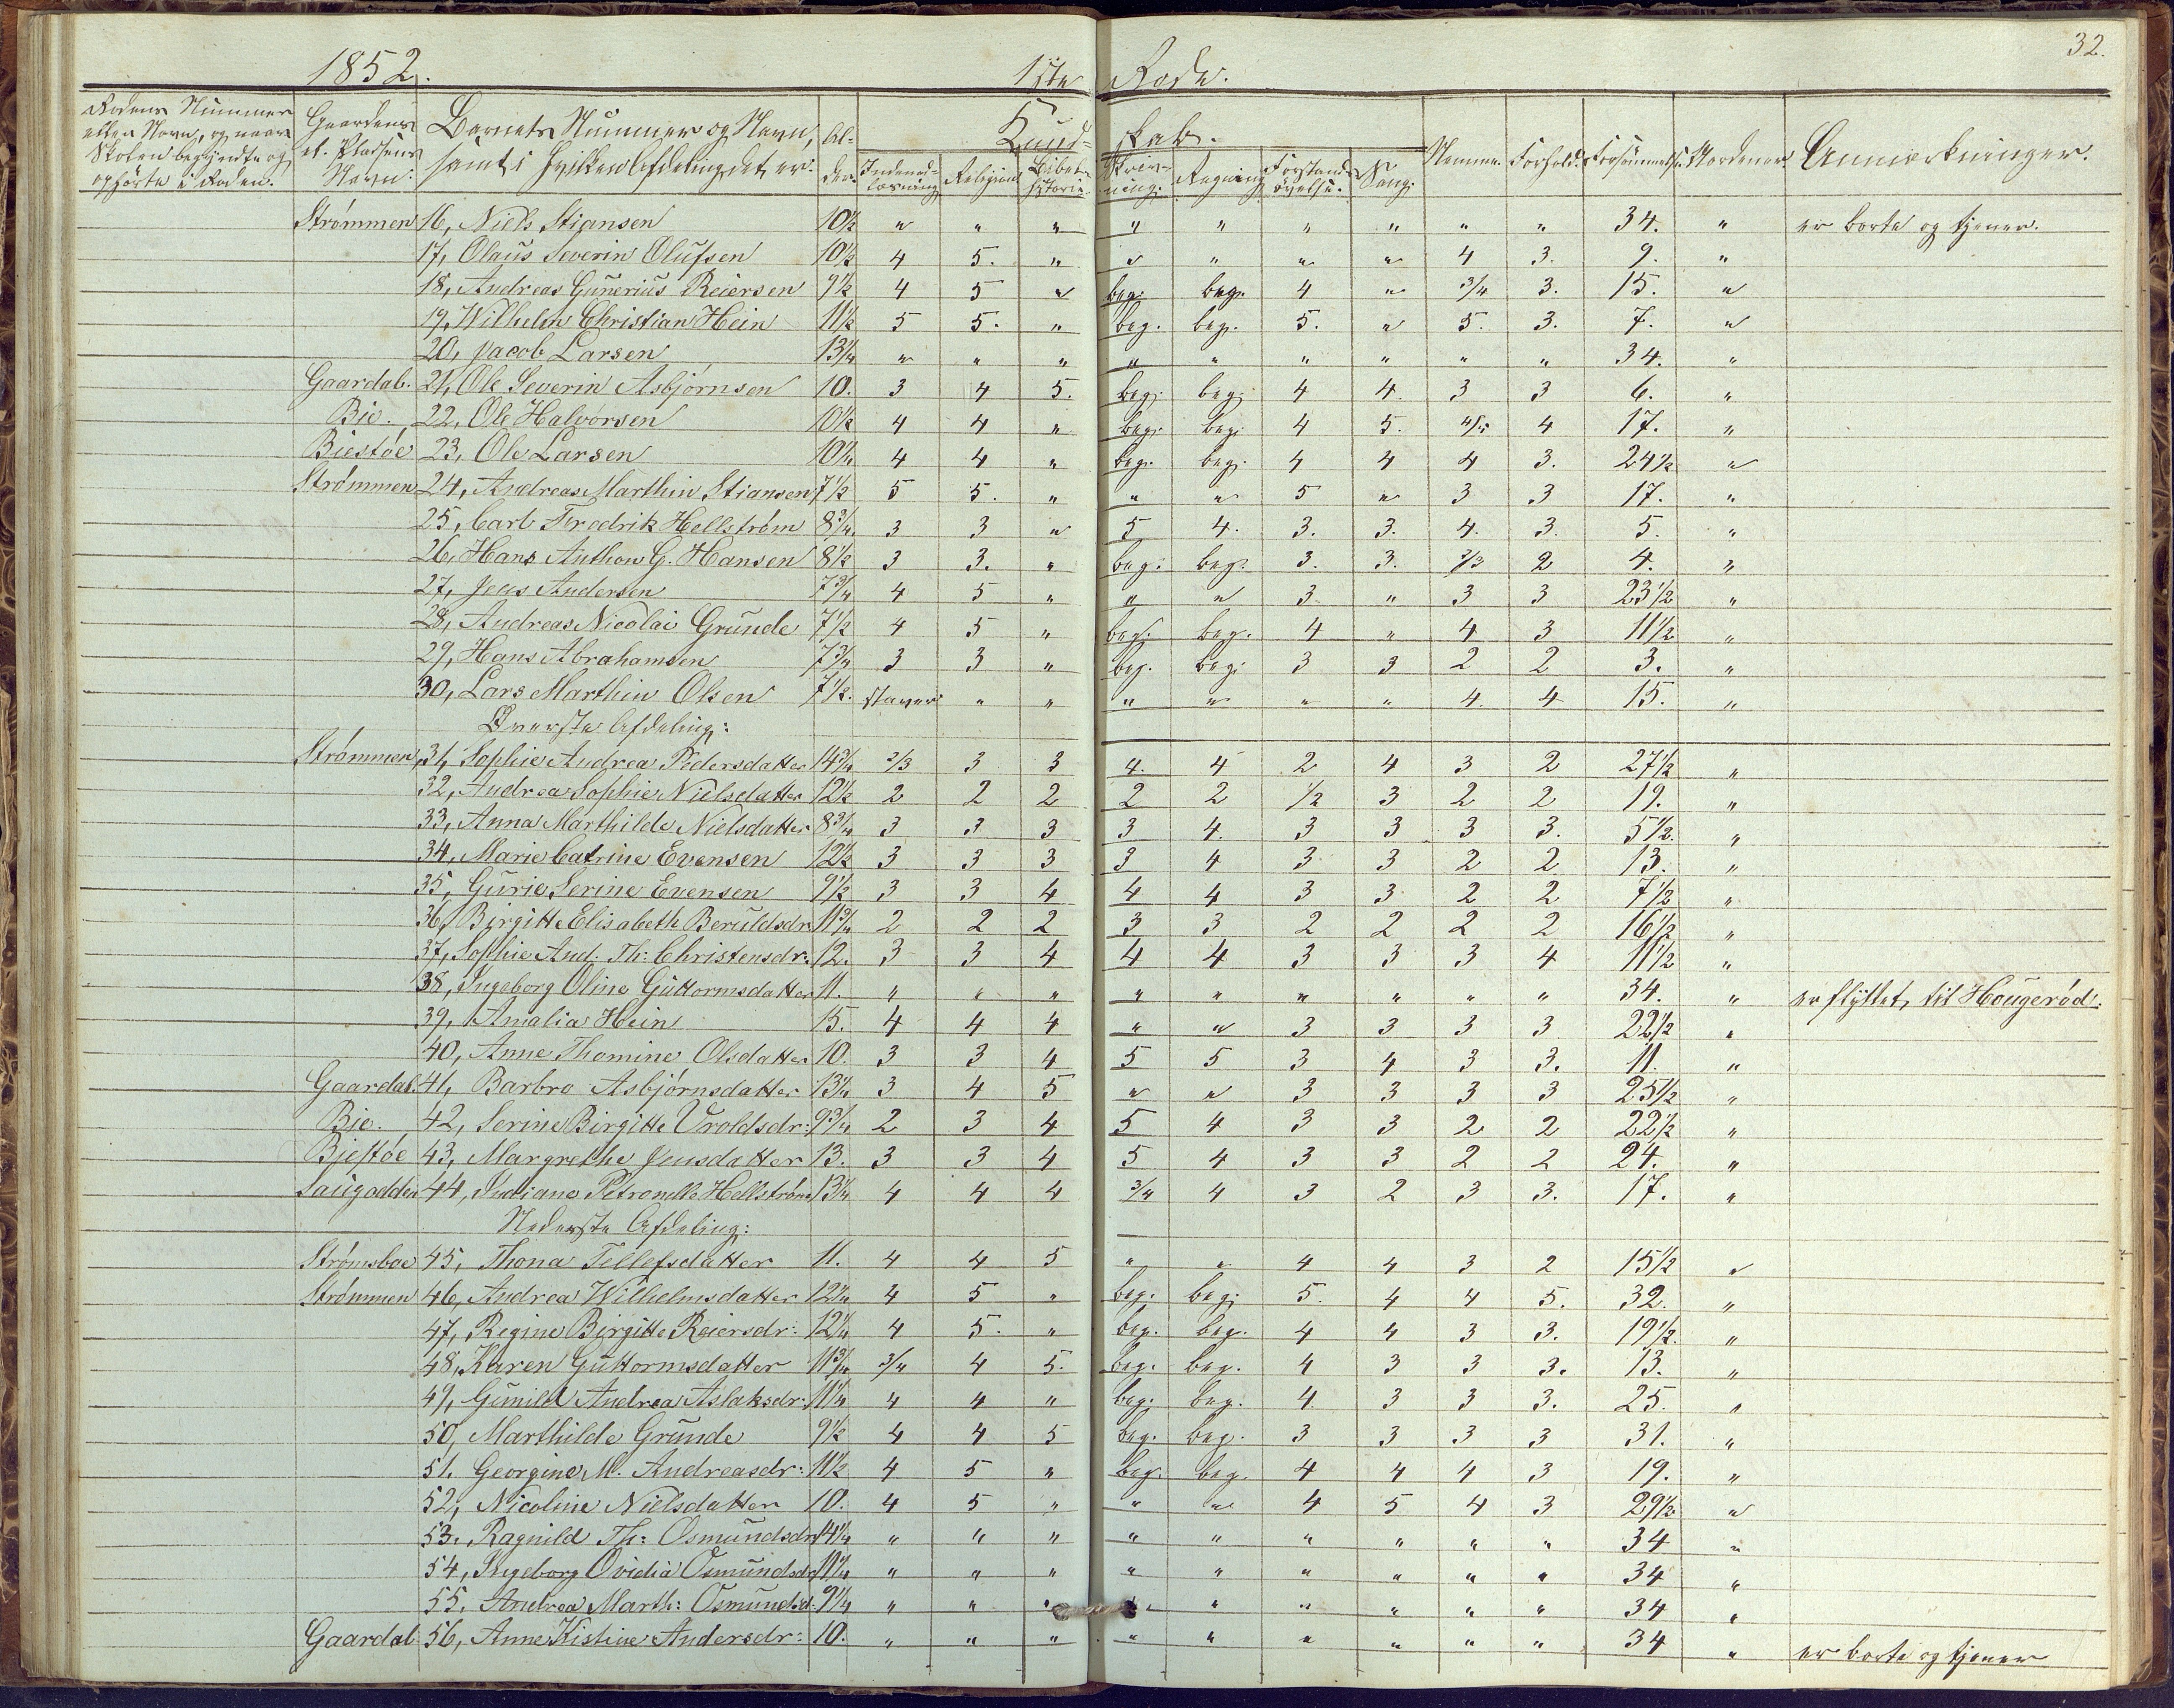 32.
1852. 1ste Rode.
Rodens Nummer eller Navn, og naar Skolen begyndte og ophørte i Roden. Gaardens el. Pladsens Navn: Barnets Nummer og Navn, samt i hvilken Afdeling det er. Alder. Kundskab. Indenadlæsning Religion Bibelhistorie Skrivning. Regning Forstandsøvelse. Sang. Nemme. Forhold. Forsømmelse. Anmærkninger.
Strømmen 16, Niels Stiansen 10½ " " " " " " " " " 34. " er borte og tjener.
17, Olaus Severin Olufsen 10½ 4 5. " " " " " 4 3. 9. "
18, Andreas Gunerius Reiersen 9½ 4 5 " beg. beg. 4 " 3/4 3. 15. "
19, Wilhelm Christian Hein 11½ 5 5. " beg. beg. 5. " 5. 3. 7. "
20, Jacob Larsen 13¼ " " " " " " " " " 34. "
Gaardal. 21, Ole Severin Asbjørnsen 10. 3 4 5. beg. beg. 4 4. 3 3 6. "
Bie. 22, Ole Halvorsen 10½ 4 4 " beg. beg. 4 5. 4/5 4 17. "
Biestøe 23, Ole Larsen 10¼ 4 4 " beg. beg. 4 4 4 3. 24½ "
Strømmen 24, Andreas Marthin Stiansen 7½ 5 5. " " " 5 " 3 3 17. "
25, Carl Fredrik Hellstrøm 8¾. 3 3 " 5 4. 3. 3. 4. 3. 5. "
26, Hans Anthon G. Hansen 8½ 3 3. " beg. beg. 3. 3. 2/3 2 4. "
27, Jens Andersen 7¾ 4 5 " " " 3 " 3 3 23½ "
28, Andreas Nicolai Grunde 7½ 4 5 " beg. beg. 4 " 4 3 11½ "
29, Hans Abrahamsen 7¾ 3 3 " beg. beg. 3 3 2 2 3. "
30, Lars Marthin Olsen 7½. staver " " " " " " 4. 4 15. "
Øverste Afdeling:
Strømmen, 31, Sophie Andrea Pedersdatter 14¾ 2/3 3 3 4. 4 2 4 3 2 27½ "
32, Andrea Sophie Nielsdatter 12½ 2 2 2 2 2 1/2 3 2 2 19. "
33, Anna Marthilde Nielsdatter 8¾ 3 3 3 3 4. 3 3 3 3. 5½. "
34, Marie Catrine Evensen 12½ 3 3 3 3 4 3 3 2 2 13. "
35, Gurie Serine Evensen 9½ 3 3 4 4 4 3 3 2 2 7½ "
36, Birgitte Elisabeth Beruldsdr. 11¾ 2 2 2 3 3 2 2 2 2 16½ "
37, Sophie And. Th: Christensdr. 12. 3 3 4 4 4 3 3 3 4 11½ "
38, Ingeborg Oline Guttormsdatter 11. " " " " " " " " " 34. " er flyttet til Hougerød.
39, Amalia Hein 15. 4 4 4 " " 3 3 3 3 22½ "
40, Anne Thomine Olsdatter 10. 3 3 4 5 5 3 4 3 3. 11. "
Gaardal. 41, Barbro Asbjørnsdatter 13¼ 3 4 5 " " 3 3 3 3 25½ "
Bie. 42, Serine Birgitte Vroldsdr: 9¾ 2 3 4 5 4 3 3 2 2 22½ "
Bjestøe 43, Margrethe Jensdatter 13. 3 3 4 5 4 3 3 2 2 24. "
Saugodden 44, Indiane Petronelle Hellstrøm 13¼ 4 4 4 3/4 4 3 2 3 3. 17. "
Nederste Afdeling:
Strømsboe 45, Thona Tellefsdatter 11. 4 4 5 " " 4 4 3 2 15½ "
Strømmen 46, Andrea Wilhelmsdatter 12¼ 4 5 " beg. beg. 5. 4 4 5. 32. "
47, Regine Birgitte Reiersdr: 12¼ 4 5. " beg. beg. 4 4 3 3. 19½. "
48, Karen Guttormsdatter 11¾ 3/4 4 5. beg. beg. 4 3 3 3. 13. "
49, Gunild Andrea Aslaksdr: 11¼ 4 4 " beg. beg. 4. 3 3 3. 25. "
50, Marthilde Grunde 9½ 4 4 5 beg. beg. 3 3 3 3 31. "
51. Georgine M. Andreasdr: 11½ 4 5 " beg. beg. 4 4 4 3 19. "
52, Nicoline Nielsdatter 10. 4 5 " " " 4 5 4 3 29½ "
53. Ragnild Th: Osmundsdr 14¼ " " " " " " " " " 34 "
54, Ingeborg Ovidia Osmundsdr 11¼ " " " " " " " " " 34 "
55. Andrea Marth: Osmundsd: 9¼ " " " " " " " " " 34 "
Gaardal 56, Anne Kistine Andersdr: 10. " " " " " " " " " 34 " er borte og tjener